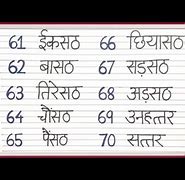 61 ईकसठ 66 छियासठ
62 बासठ 67 सड़सठ
63 तिरेसठ 68 अड़सठ
64 चौंसठ 69 उनहत्तर
65 पैंसठ 70 सत्तर